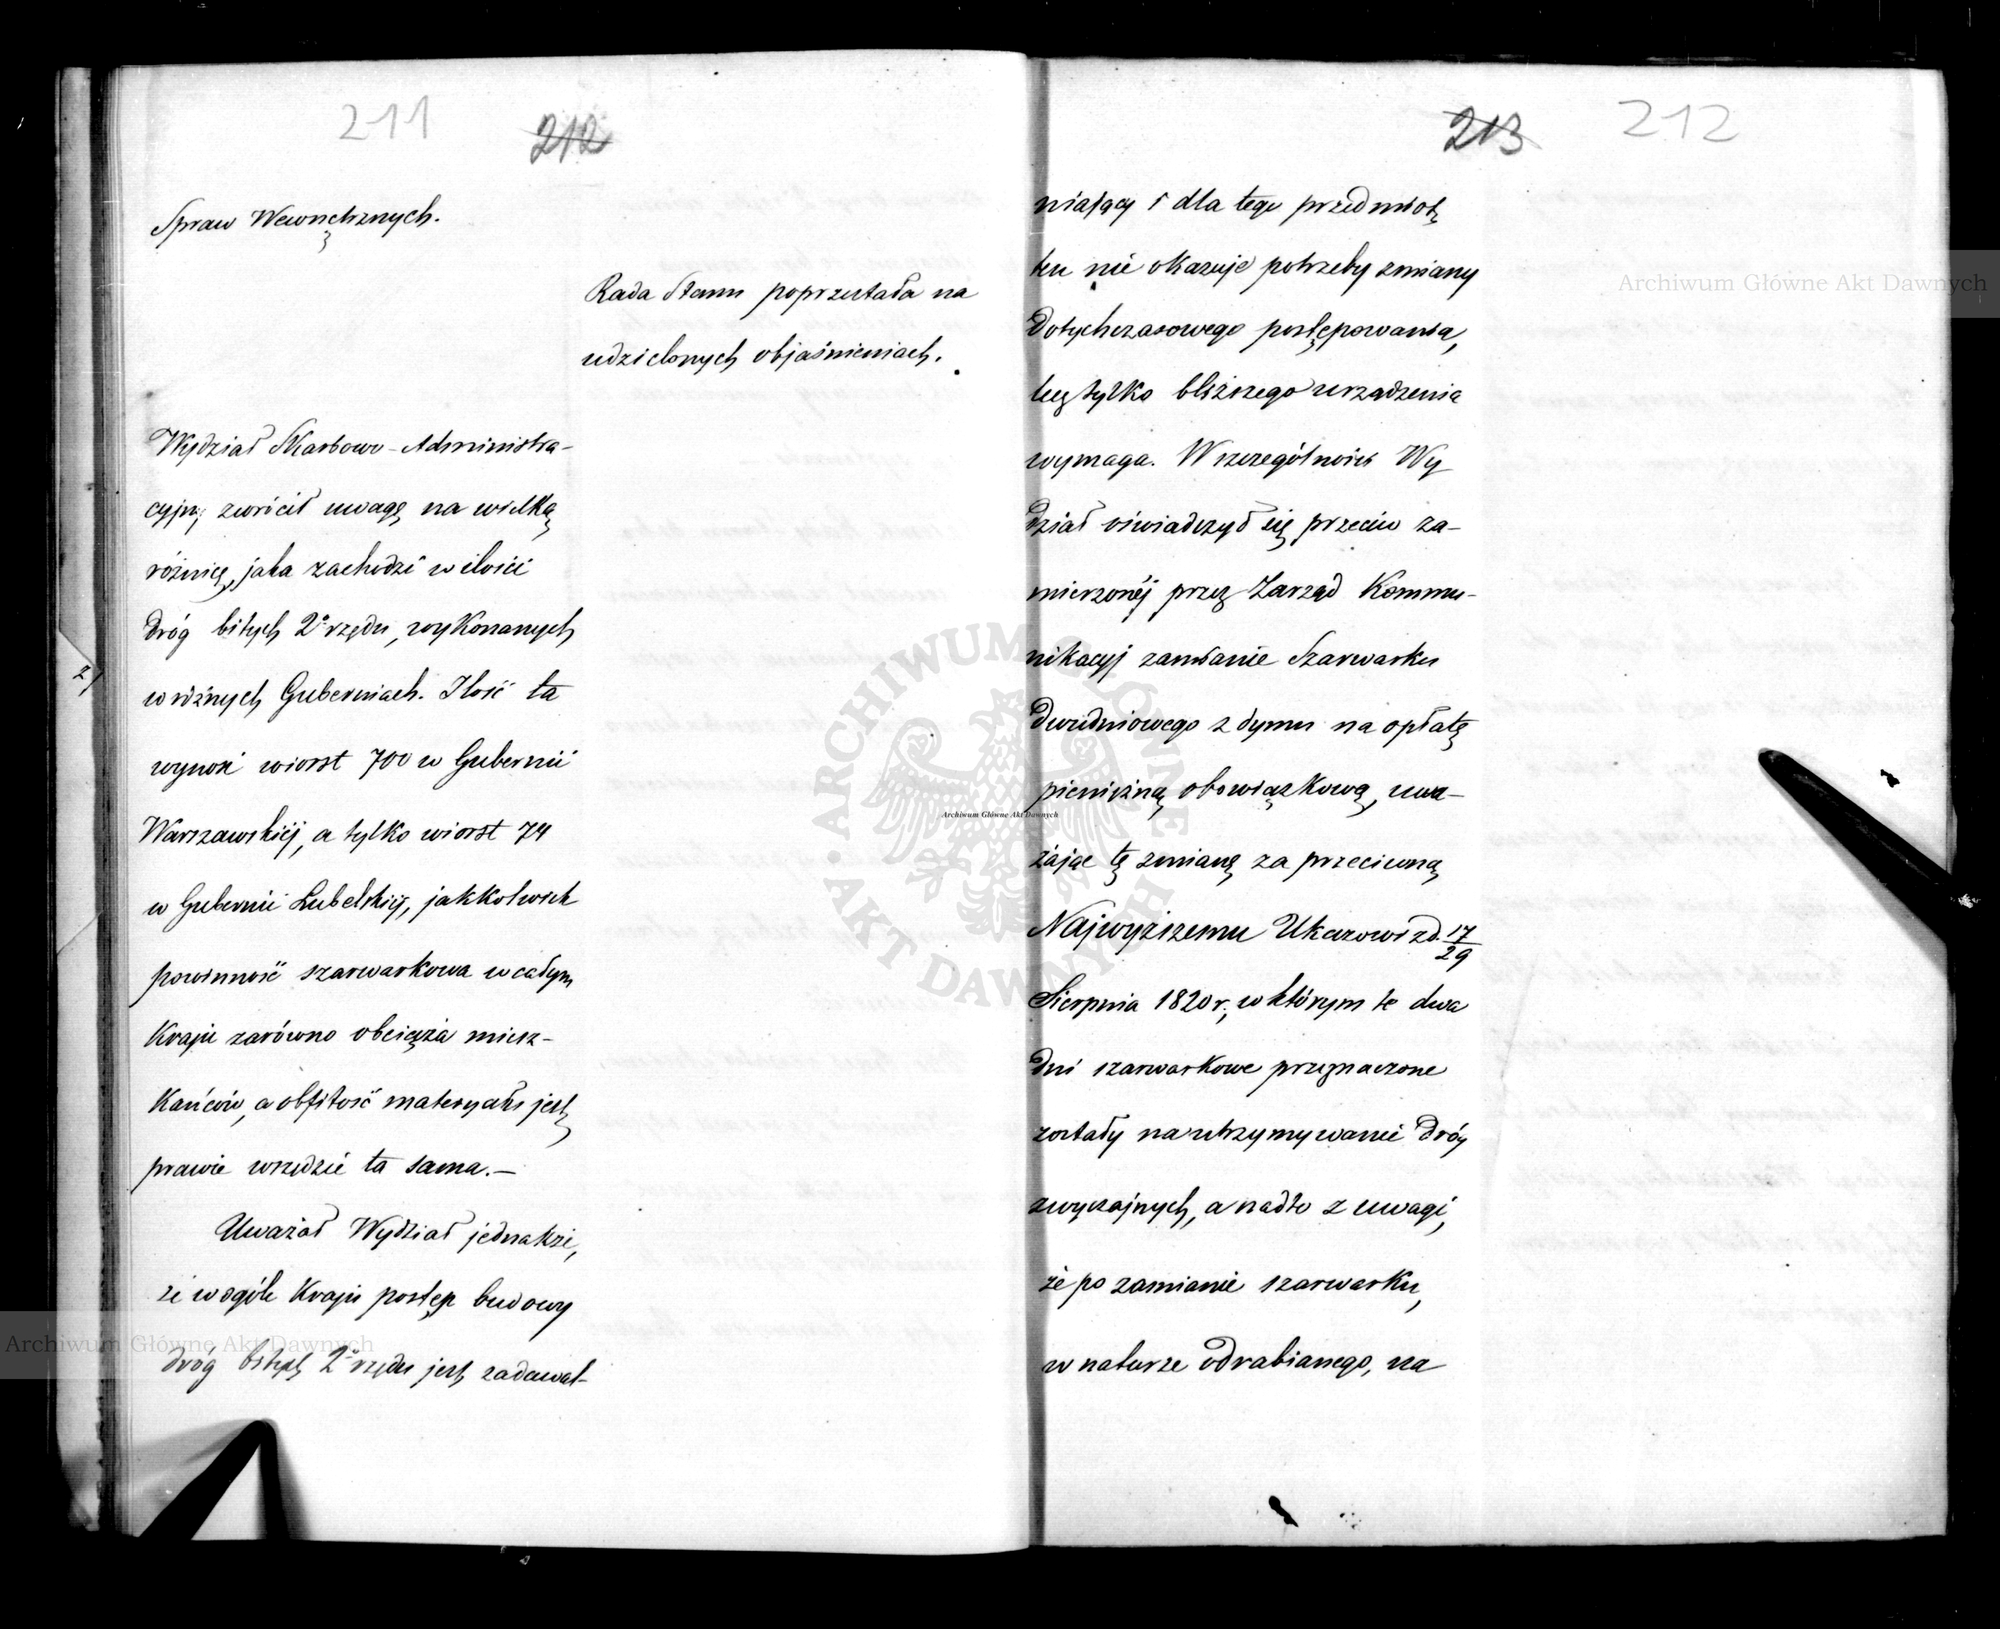 211
212
Spraw Wewnętrznych.
Rada Stanu poprzestała na
udzielonych objaśnieniach.
Wydział Skarbowo-Administra-
cyjny zwrócił uwagę na wielką
różnicę, jaka zachodzi w ilości
dróg bitych 2º rzędu, wykonanych
w różnych Guberniach. Ilość ta
wynosi wiorst 700 w Gubernii
Warszawskiéj, a tylko wiorst 74
w Gubernii Lubelskiéj, jakkolwiek
powinność szarwarkowa w całym
Kraju zarówno obciąża miesz-
kańców, a obfitość materyału jest
prawie wszędzie ta sama.—
Uważał Wydział jednakże,
że w ogóle Kraju postęp budowy
dróg bitych 2º rzędu jest zadawal-
213
212
niający i dla tego przedmiot
ten nie okazuje potrzeby zmiany
dotychczasowego postępowania,
lecz tylko bliższego urządzenia
wymaga. W szczególności Wy
dział oświadczył się przeciw za-
mierzonéj przez Zarząd Kommu-
nikacyj zamianie Szarwarku
dwudniowego z dymu na opłatę
pieniężną obowiązkową, uwa-
żając tę zmianę za przeciwną
Najwyższemu Ukazowi z d. 17/29
Sierpnia 1820 r., w którym te dwa
dni szarwarkowe przeznaczone
zostały na utrzymywanie dróg
zwyczajnych, a nadto z uwagi,
że po zamianie szarwarku,
w naturze odrabianego, na
2)
Archiwum Główne Akt Dawnych
Archiwum Główne Akt Dawnych
Archiwum Główne Akt Dawnych
ARCHIWUM GŁÓWNE
AKT DAWNYCH